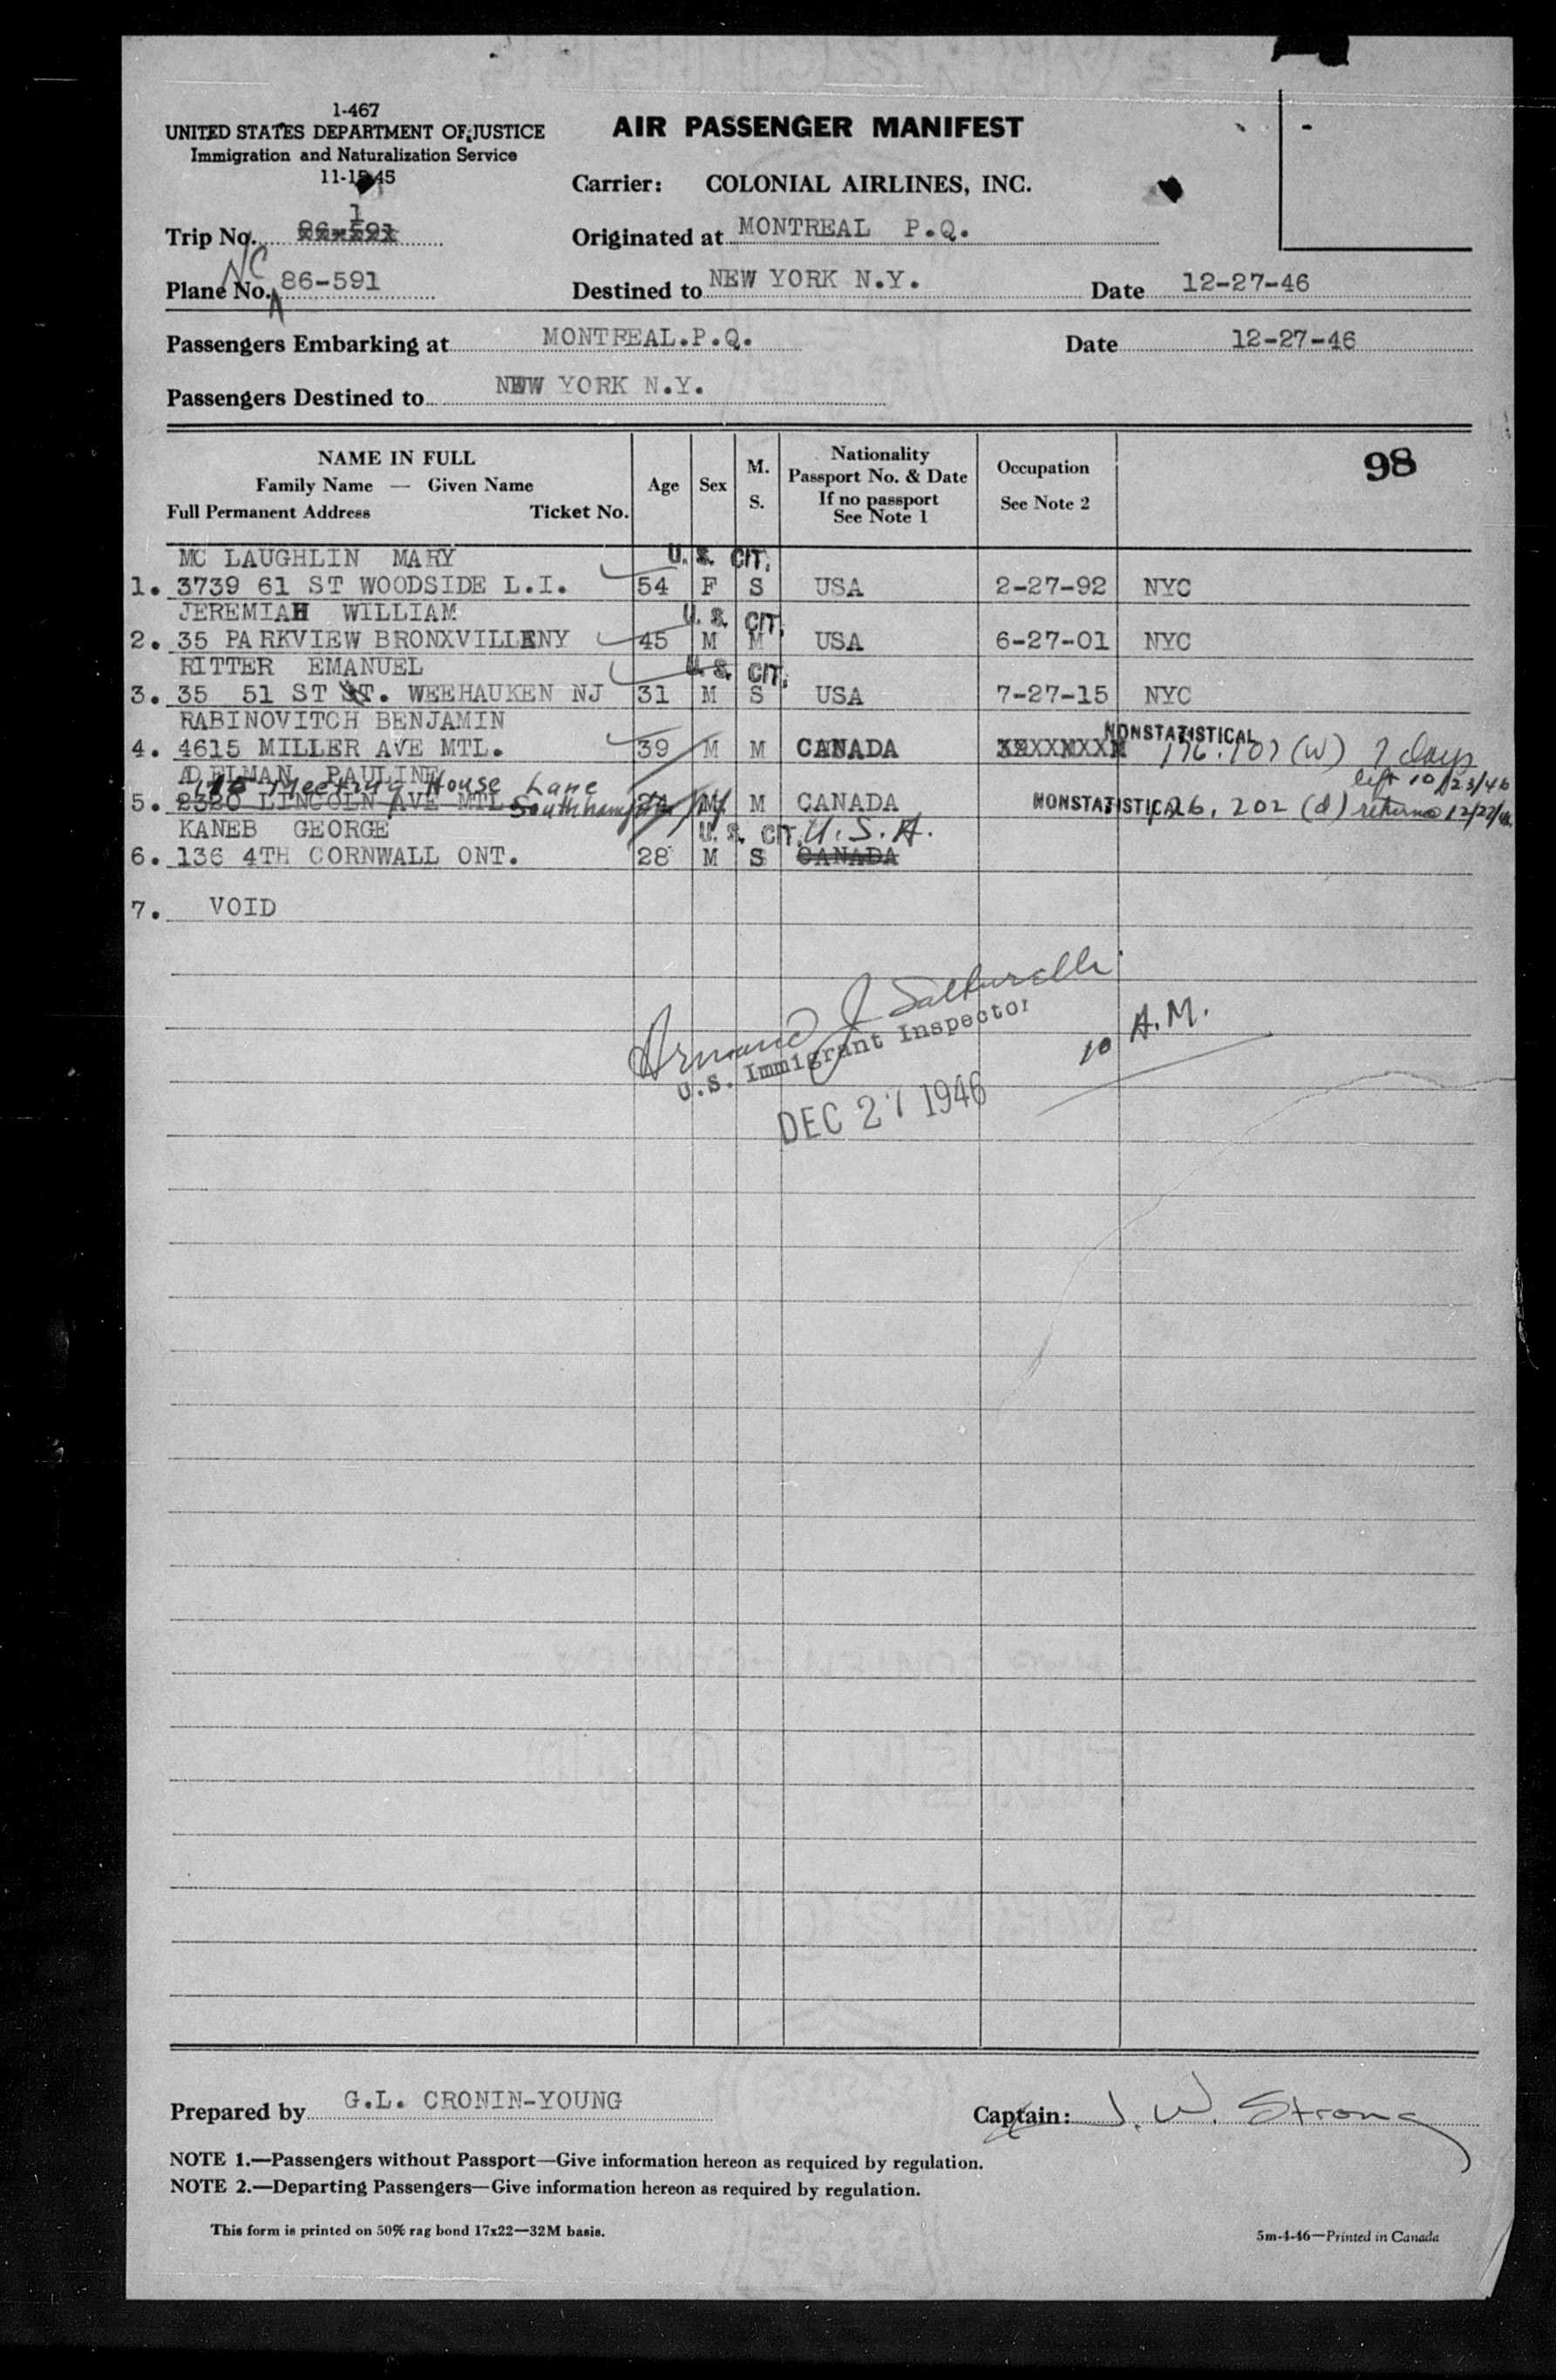 1-467
UNITED STATES DEPARTMENT OF JUSTICE
Immigration and Naturalization Service
AIR PASSENGER MANIFEST
Carrier: COLONIAL AIRLINES, INC.
1
Trip No.
Originated at MONTREAL P.Q.
NC
Plane No. 86-591
Destined to NEW YORK N.Y.
Date 12-27-46
Passengers Embarking at MONTREAL.P.Q.
Date 12-27-46
Passengers Destined to NEW YORK N.Y.
NAME IN FULL
Family Name — Given Name
Full Permanent Address Ticket No.
Age
Sex
M.
S.
Nationality
Passport No. & Date
If no passport
See Note 1
Occupation
See Note 2
98
MC LAUGHLIN MARY U. S. CIT.
1. 3739 61 ST WOODSIDE L.I. 54 F S USA 2-27-92 NYC
JEREMIAH WILLIAM U. S. CIT.
2. 35 PARKVIEW BRONXVILLENY 45 M M USA 6-27-01 NYC
RITTER EMANUEL U. S. CIT.
3. 35 51 ST ST. WEEHAUKEN NJ 31 M S USA 7-27-15 NYC
RABINOVITCH BENJAMIN NONSTATISTICAL
4. 4615 MILLER AVE MTL. 39 M M CANADA (W) 7 days
ADELMAN PAULINE left 10/23/46
Meeting House Lane
5. 2320 LINCOLN AVE MTL Southhampton M M CANADA NONSTATISTICAL 202 (d) returns
KANEB GEORGE U. S. CIT. U.S.A.
6. 136 4TH CORNWALL ONT. 28 M S CANADA
7. VOID
Armand J
U.S. Immigrant Inspector
10 A.M.
DEC 27 1946
Prepared by G.L. CRONIN-YOUNG
Captain: J. W. Strong
NOTE 1.—Passengers without Passport—Give information hereon as required by regulation.
NOTE 2.—Departing Passengers—Give information hereon as required by regulation.
This form is printed on 50% rag bond 17x22—32M basis.
5m-4-46—Printed in Canada